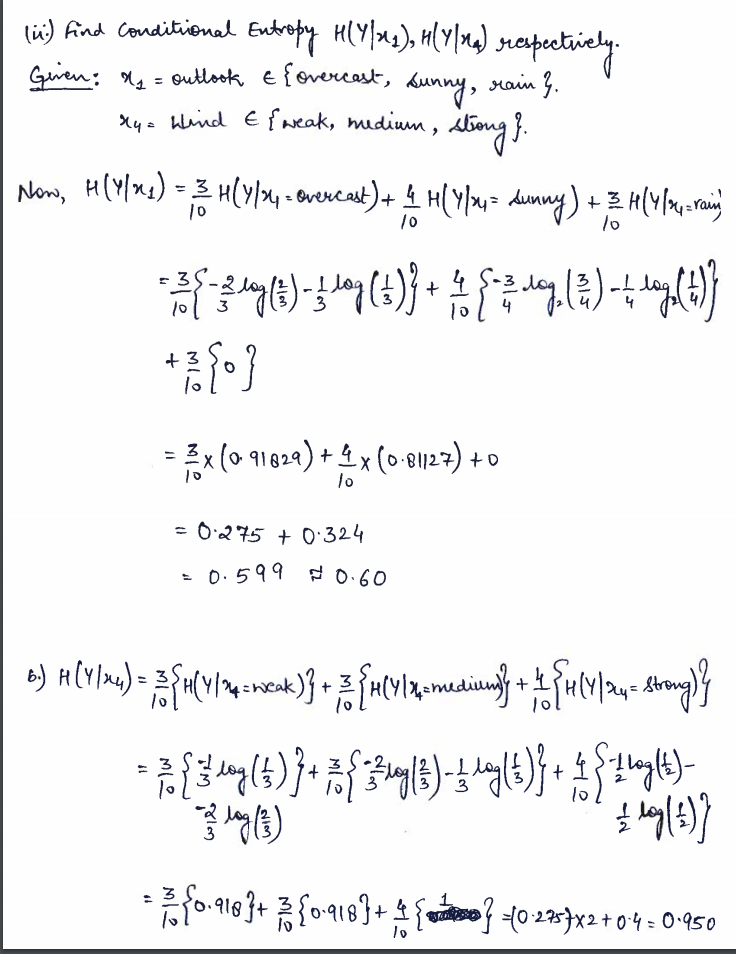 (ii) Find Conditional Entropy H(Y|x₁), H(Y|x₄) respectively.
Given: x₁ = outlook ∈ {overcast, sunny, rain}.
x₄ = Wind ∈ {weak, medium, strong}.
Now, H(Y|x₁) = 3/10 H(Y|x₁ = overcast) + 4/10 H(Y|x₁ = sunny) + 3/10 H(Y|x₁ = rain)
= 3/10 {-2/3 log(2/3) - 1/3 log(1/3)} + 4/10 {-3/4 log₂(3/4) - 1/4 log₂(1/4)}
+ 3/10 {0}
= 3/10 x (0.91829) + 4/10 x (0.81127) + 0
= 0.275 + 0.324
= 0.599 ≈ 0.60
b.) H(Y|x₄) = 3/10 {H(Y|x₄ = weak)} + 3/10 {H(Y|x₄ = medium)} + 4/10 {H(Y|x₄ = strong)}
= 3/10 {-1/3 log(1/3)} + 3/10 {-2/3 log(2/3) - 1/3 log(1/3)} + 4/10 {-1/2 log(1/2) -
-2/3 log(2/3) 1/2 log(1/2)}
= 3/10 {0.918} + 3/10 {0.918} + 4/10 {1} = (0.275) x 2 + 0.4 = 0.950